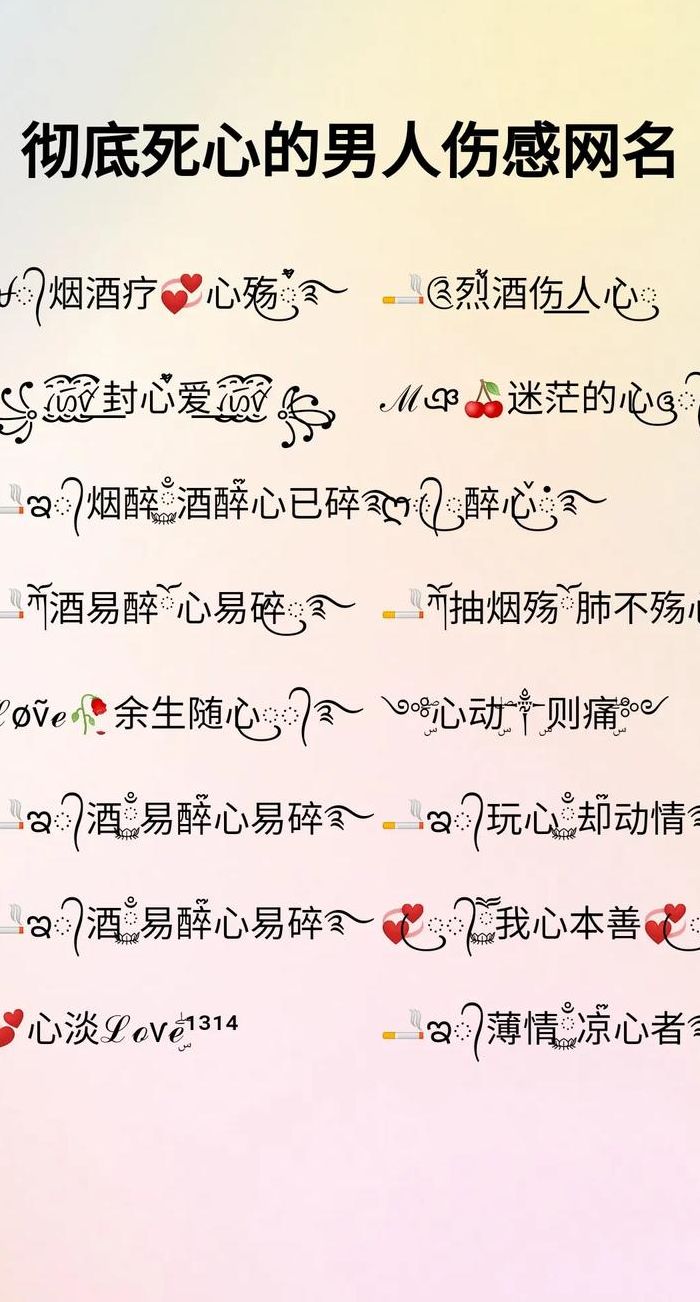 彻底死心的男人伤感网名
烟酒疗💞心殇
🚬烈酒伤人心
封心爱
ℳ🍒迷茫的心
🚬烟醉酒醉心已碎
醉心
🚬酒易醉心易碎
🚬抽烟殇肺不殇心
ℒøṽℯ🥀余生随心
心动则痛
🚬酒易醉心易碎
🚬玩心却动情
🚬酒易醉心易碎
💞我心本善💞
💕心淡ℒℴѵℯ¹³¹⁴
🚬薄情凉心者